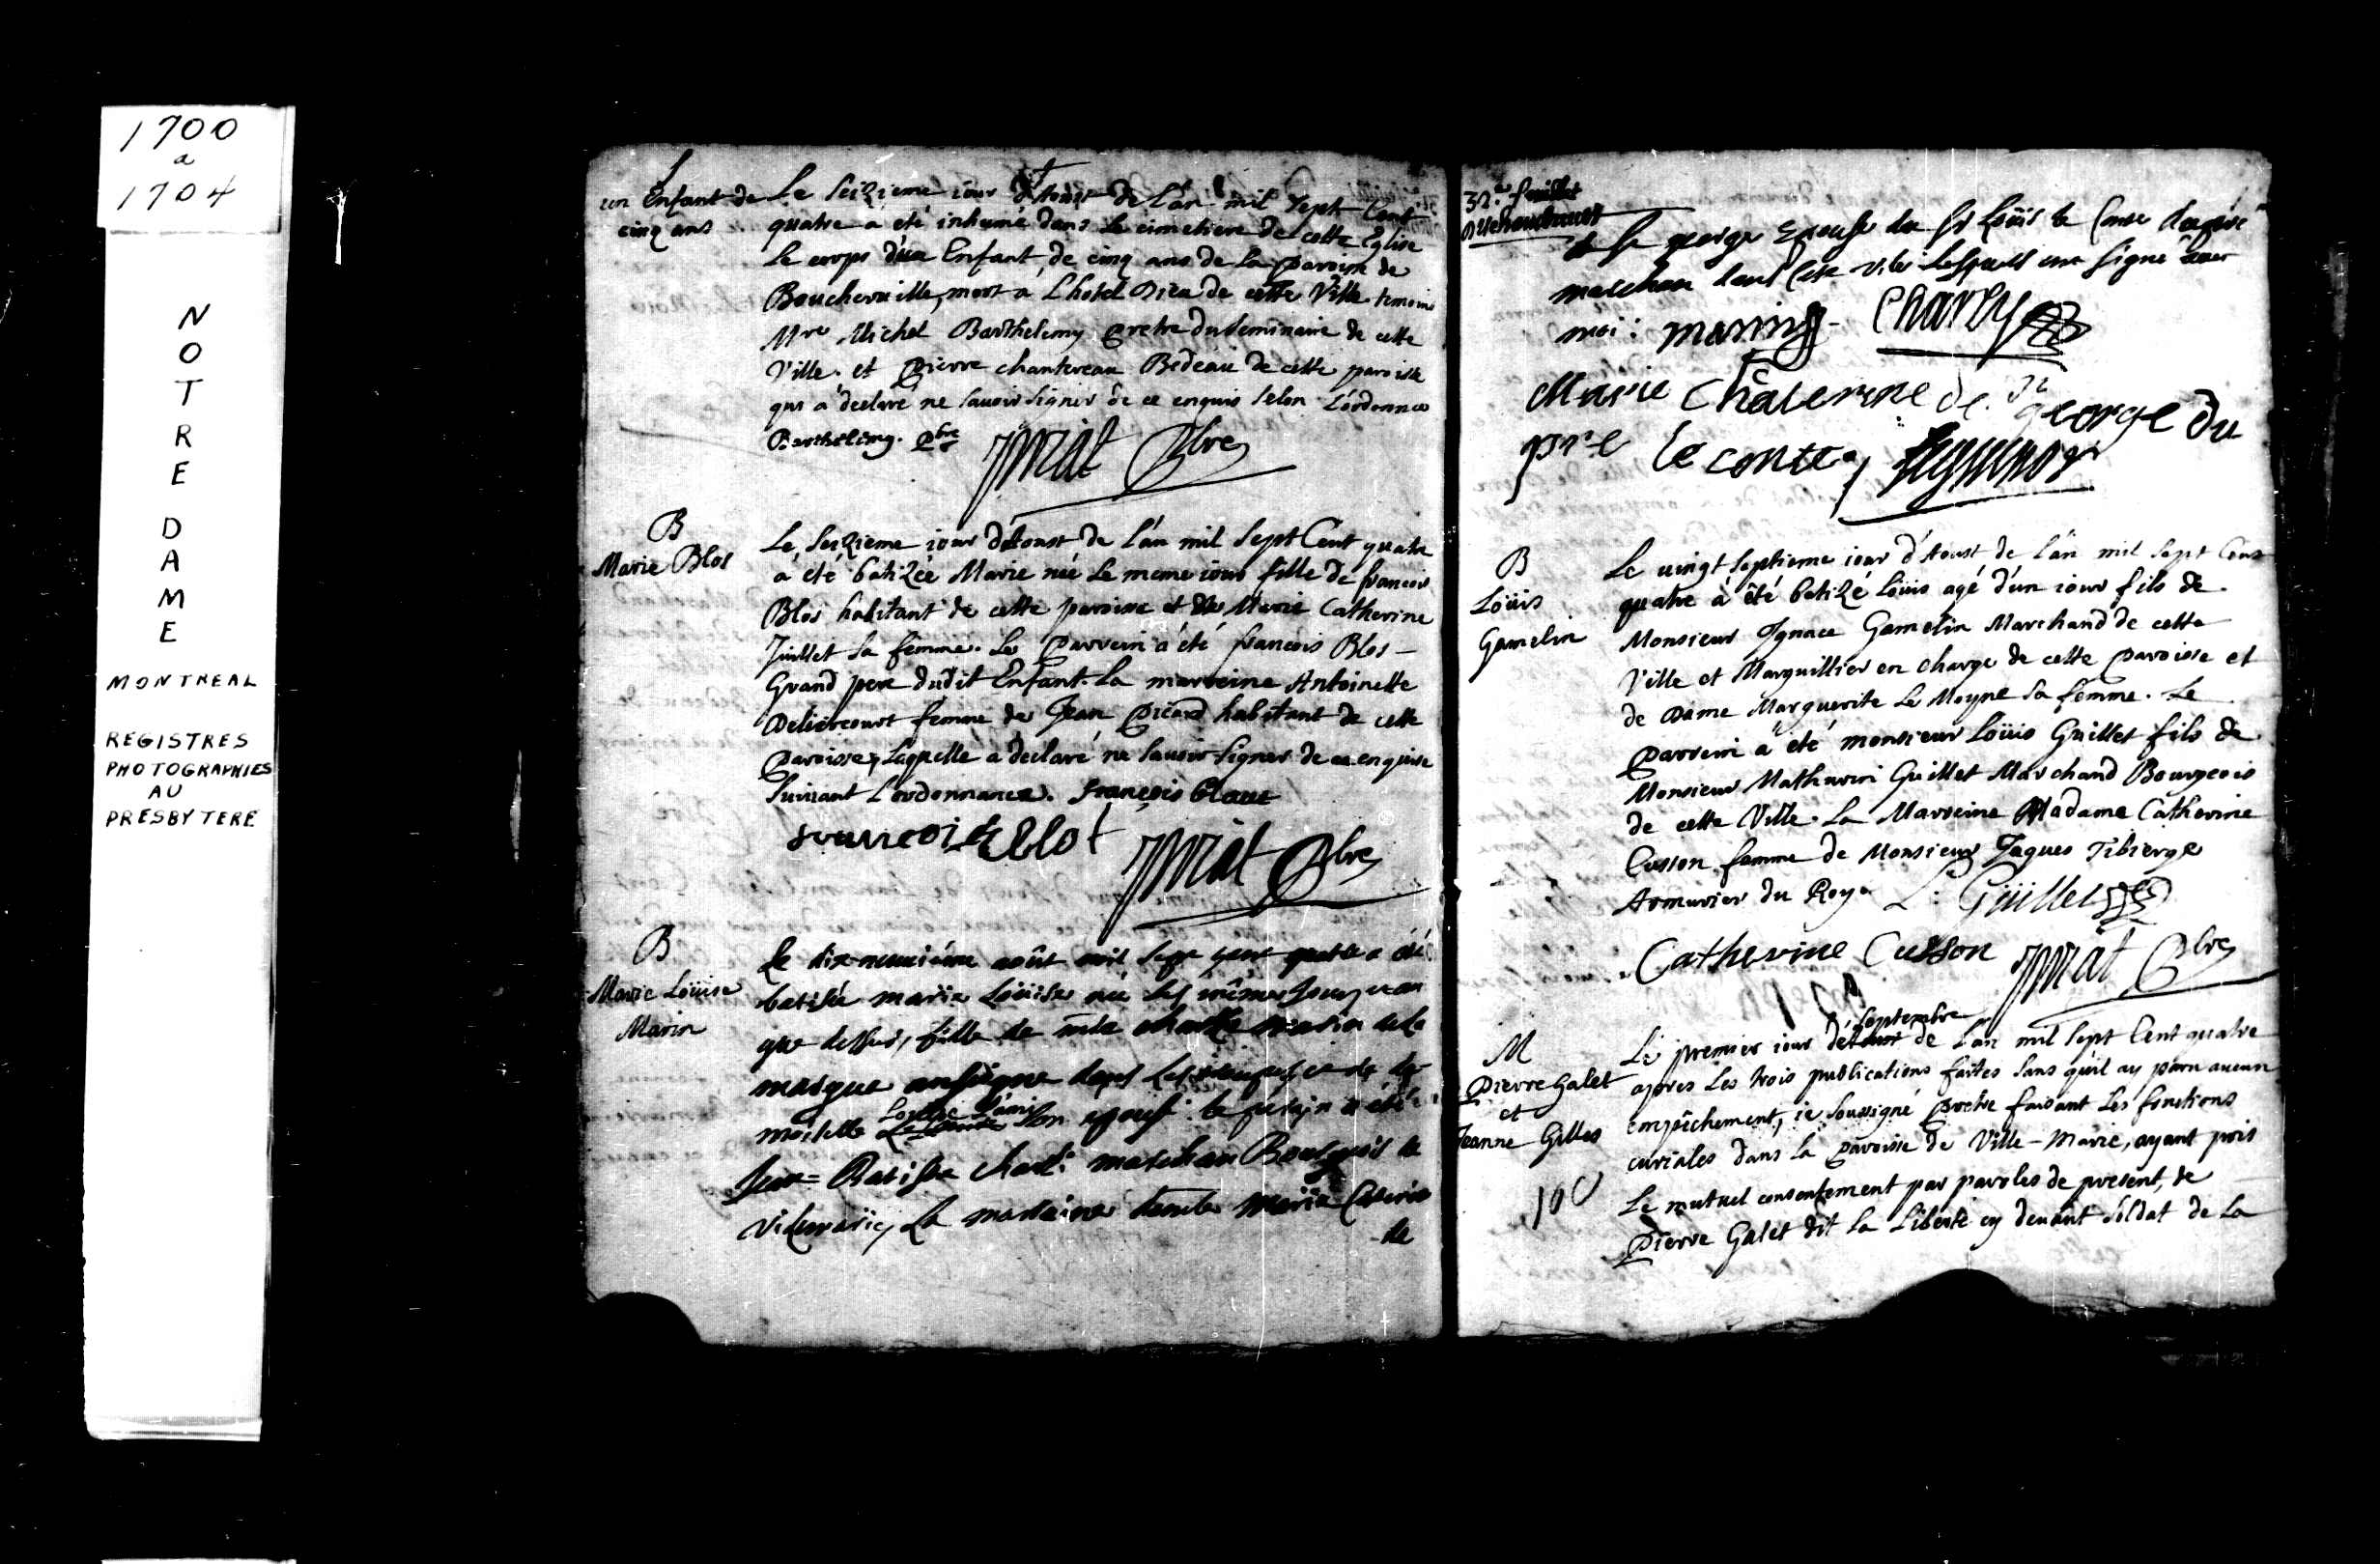 1700
a
1704
NOTRE
DAME
MONTREAL
REGISTRES
PHOTOGRAPHIES
AU
PRESBYTERE
un Enfant de
cinq ans
Le Seizieme iour d'Aoust de l'án mil Sept Cent
quatre a eté inhumé dans Le cimetiere de cette Eglise
Le corps d'un Enfant de cinq ans de La paroisse de
Boucherville, mort a L'hotel Dieu de cette Ville temoins
Mre Michel Barthelemy pretre du Seminaire de cette
Ville. et Pierre chantereau Bedeau de cette paroisse
qui a declaré ne Savoir Signer de ce enquis Selon L'ordonnce
Barthelemy. pbre Priat Pbre
B
Marie Blos
Le Seizieme iour d'Aoust de l'án mil Sept Cent quatre
a été batizée Marie née Le meme iour fille de francois
Blos habitant de cette paroisse et de Marie Catherine
Juillet Sa femme. Le Parrein a été francois Blos -
Grand pere dudit Enfant. La marreine Antoinette
Deliercourt femme de Jean Picard habitant de cette
Paroisse, Laquelle a declaré ne Savoir Signer de ce enquise
Suivant L'ordonnance. francois blaut
francois Blot Priat Pbre
B
Marie Loüise
Marin
Le dix neuviéme août mil sept cent quatre a été
batisée marie Loüise née les même jour et an
que dessus, fille de charle marin de la
masque anseigne dans les trouppes et de de-
moiselle Louise Lami son epouse le parain a été
Jean-Batiste charli marchan Bourgois de
Vilemarie, La maraine demlle Marie Caterine
de
32e feuillet
St george Epouse du Sr Loüis le Conte dupré
marchan dans cete vile lesquels ont signé avec
moi: marin Charly
Marie Chaterine de St george du
pré le conte,
B
Loüis
Gamelin
Le uingt Septieme iour d'Aoust de l'án mil Sept Cens
quatre à été batizé Loüis agé d'un iour fils de
Monsieur Ignace Gamelin Marchand de cette
Ville et Marguillier en charge de cette Paroisse et
de Dame Marguerite Le Moyne Sa femme. Le
Parrein a été monsieur Loüis Guillet fils de
Monsieur Mathurin Guillet Marchand Bourgeois
de cette Ville. La Marreine Madame Catherine
Cusson femme de Monsieur Jaques Tibierge
Armurier du Roy. L: Guillet
Catherine Cusson Priat Pbre
M
Pierre Galet
et
Jeanne Gilles
Septembre
Le premier iour d'Aoust de l'án mil Sept Cent quatre
apres Les trois publications faites Sans qu'il ay paru aucun
empéchement, ie Soussigné Pretre faisant Les fonctions
curiales dans La Paroisse de Ville-Marie, ayant pris
Le mutuel consentement par paroles de present, de
Pierre Galet dit La Liberté cy devant Soldat de La